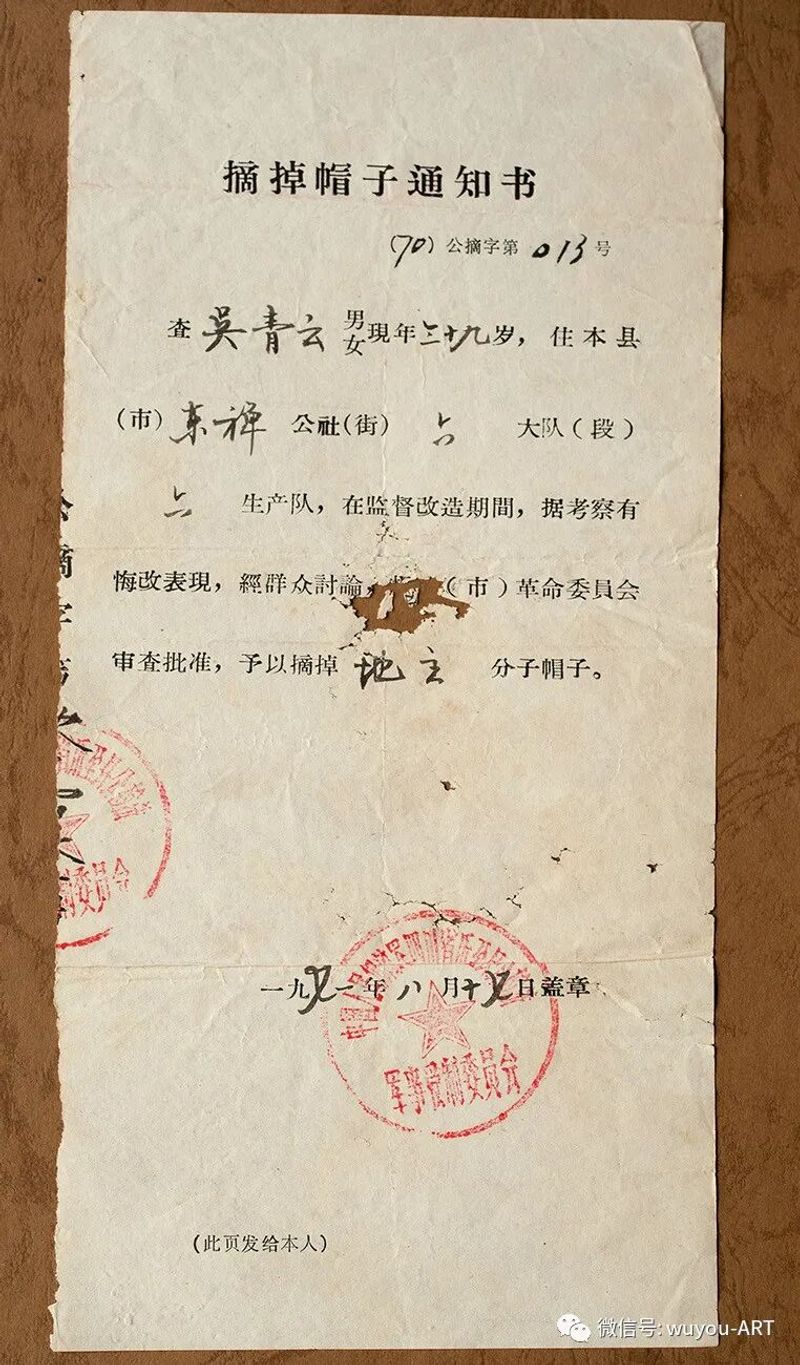 摘掉帽子通知书
(70)公摘字第013号
查吳青云 男女 現年三十九岁，住本县
(市)東禅公社(街)六大队(段)
六生产队，在监督改造期間，据考察有
悔改表現，經群众討論，(市)革命委員会
审查批准，予以摘掉地主分子帽子。
公摘字第
一九七一年八月十七日盖章
军事管制委员会
(此页发给本人)
微信号: wuyou-ART